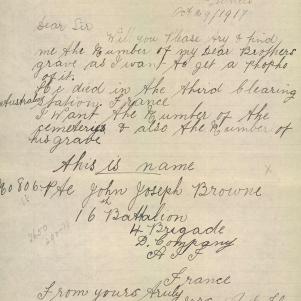 Oct 29/1917
Dear Sir
Will you Please try & find
me the Number of my Dear Brothers
grave as I want to get a Photo
of it.
He died in the third Clearing
Australian Station France
I want the Number of the
cemeterys & also the Number of
his grave
this is name
No 806 Pte John Joseph Browne
16th Battalion
4 Brigade
D. Company
A I F
France
From yours truly